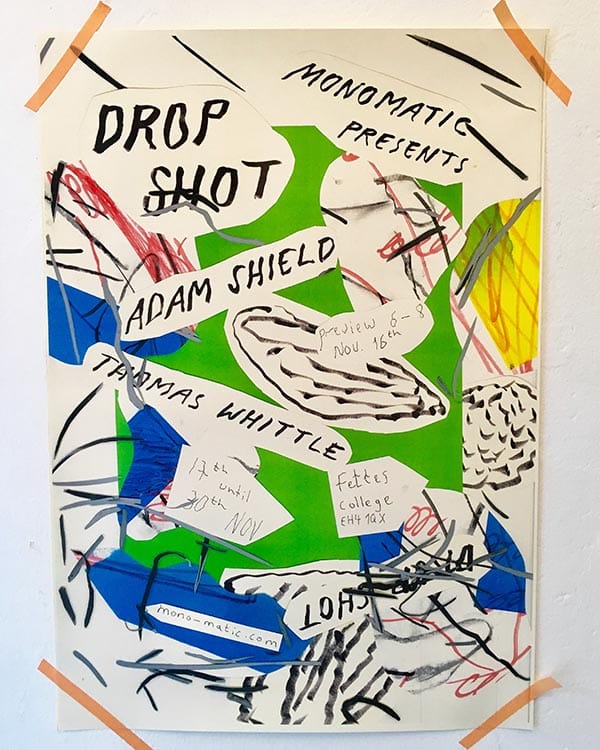 DROP
SHOT
MONOMATIC
PRESENTS
ADAM SHIELD
preview 6-8
Nov. 16th
THOMAS WHITTLE
17th
until
30th
NOV
Fettes
College
EH4 1QX
SHOT
mono-matic.com